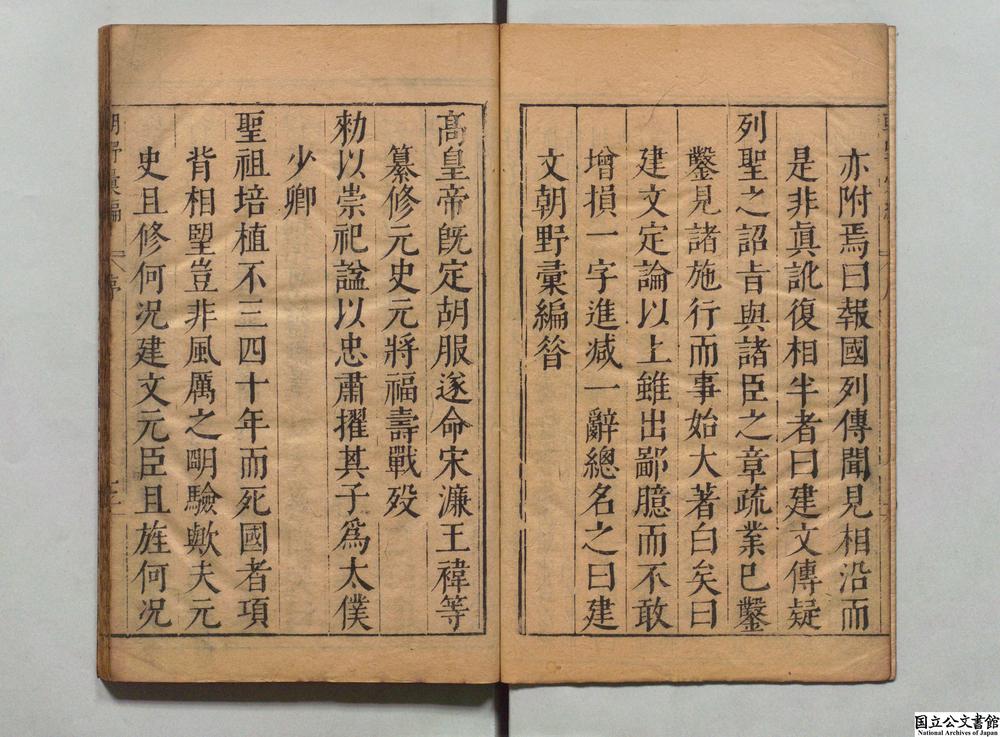 亦附焉曰報國列傳聞見相沿而
是非眞訛復相半者曰建文傳疑
列聖之詔㫖與諸臣之章疏業已鑿
鑿見諸施行而事始大著白矣曰
建文定論以上雖出鄙臆而不敢
增損一字進減一辭總名之曰建
文朝野彙編昝
高皇帝旣定胡服遂命宋濂王褘等
纂修元史元將福壽戰殁
勑以崇祀諡以忠肅擢其子爲太僕
少卿
聖祖培植不三四十年而死國者項
背相望豈非風厲之眀驗歟夫元
史且修何况建文元臣且旌何况
朝野彙編 序
国立公文書館
National Archives of Japan